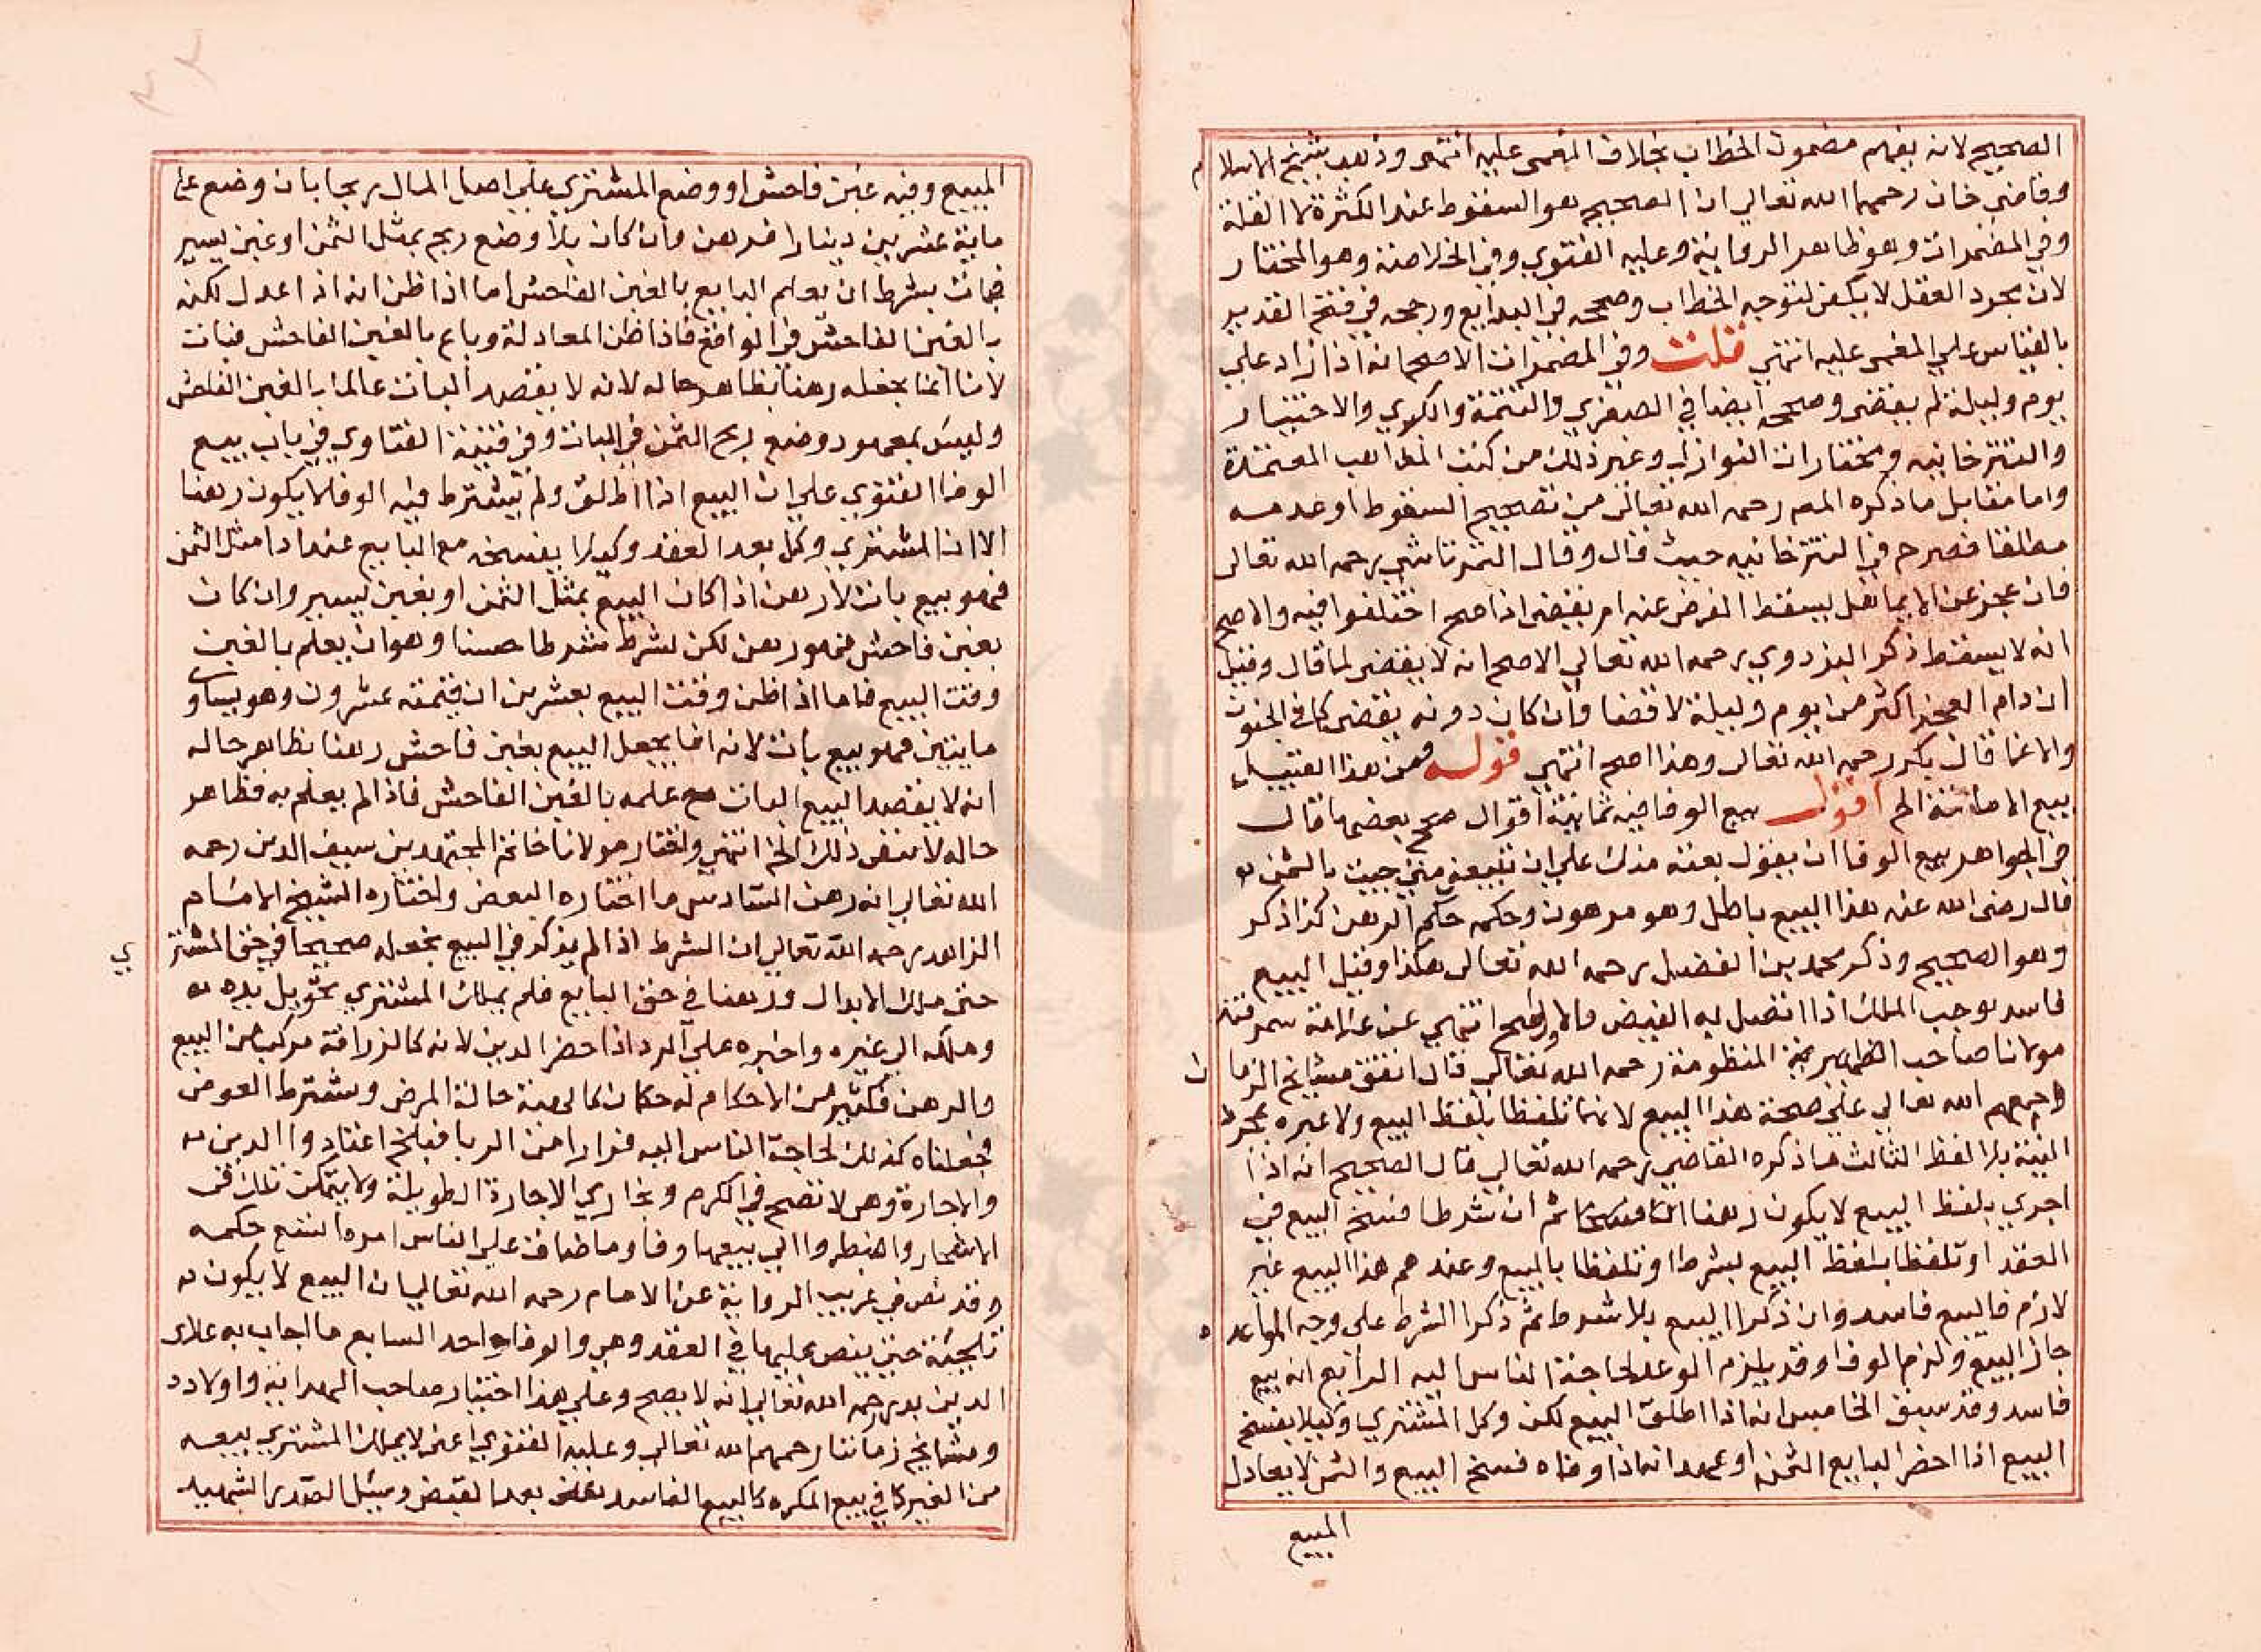 الصحيح لانه يفهم مضمون الخطاب بخلاف المغمى عليه انتهى وذهب شيخ الاسلام
وقاضي خان رحمهما الله تعالى ان الصحيح هو السقوط عند الكثرة لا القلة
وفي المضمرات وهو ظاهر الرواية وعليه الفتوى وفي الخلاصة وهو المختار
لان مجرد العقل لا يكفي لتوجه الخطاب وصححه في البدايع ورجحه في فتح القدير
بالقياس على المغمى عليه انتهى قلت وفي المضمرات الاصح انه اذا زاد على
يوم وليلة لم يقضى وصححه ايضا في الصغرى والتتمة والكبرى والاختيار
والتترخانيه ومختارات النوازل وغير ذلك من كتب المذاهب المعتمدة
واما مقابل ما ذكره المص رحمه الله تعالى من تصحيح السقوط او عدمه
مطلقا فصرح في التترخانيه حيث قال وقال التمرتاشي رحمه الله تعالى
فان عجز عن الايما هل يسقط الفرض عنه ام يقضى اذا صح اختلفوا فيه والاصح
انه لا يسقط ذكر البزدوي رحمه الله تعالى الاصح انه لا يقضى لما قال وقيل
ان دام العجز اكثر من يوم وليلة لا قضا وان كان دونه يقضى كما في الجنون
والاغما قال بكر رحمه الله تعالى وهذا اصح انتهى قوله ومن هذا القبيل
بيع الامانة الخ اقول بيع الوفا فيه ثمانية اقوال صحح بعضها قال
في الجواهر بيع الوفا ان يقول بعته منك على ان تبيعه مني جيت بالثمن
قال رضى الله عنه هذا البيع باطل وهو مرهون وحكمه حكم الرهن كذا ذكر
وهو الصحيح وذكر محمد بن الفضل رحمه الله تعالى هكذا وقيل البيع
فاسد يوجب الملك اذا اتصل به القبض والاول اصح انتهى عن علامة سمرقند
مولانا صاحب المنظومة رحمه الله تعالى قال اتفق مشايخ الزمان
رحمهم الله تعالى على صحة هذا البيع لانهما تلفظا بلفظ البيع ولا عبره بمجرد
النية بلا لفظ الثالث ما ذكره القاضي رحمه الله تعالى قال الصحيح انه اذا
اجري بلفظ البيع لا يكون رهنا ثم ان شرطا فسخ البيع في
العقد او تلفظا بلفظ البيع بشرط او تلفظا بالبيع وعندهم هذا البيع غير
لازم فالبيع فاسد وان ذكرا البيع بلا شرط ثم ذكرا الشرط على وجه المواعده
جاز البيع ولزم الوفا وقد يلزم الوعد لحاجة الناس اليه الرابع انه بيع
فاسد وقد سبق الخامس انه اذا اطلق البيع لكن وكل المشتري وكيلا بفسخ
البيع اذا احضر البايع الثمن او عهد انه اذا اوفاه فسخ البيع والثمن لا يعادل
المبيع
المبيع وفيه غبن فاحش او وضع المشتري على اصل المال ربحا بان وضع على
ماية عشرين دينارا فرهن وان كان بلا وضع ربح بمثل الثمن او غبن يسير
فبات بشرط ان يعلم البايع بالغبن الفاحش اما اذا ظن انه اذا عدل لكنه
بالغبن الفاحش في الواقع فاذا ظن المعادلة وباع بالغبن الفاحش فبات
لانا انما نجعله رهنا بظاهر حاله لانه لا يقصد البات عالما بالغبن الفاحش
وليس بمعهود وضع ربح الثمن في البات وفي قنية الفتاوي في باب بيع
الوفا الفتوى على ان البيع اذا اطلق ولم يشترط فيه الوفا لا يكون رهنا
الا ان المشتري وكل بعد العقد وكيلا يفسخه مع البايع عند ادا مثل الثمن
فهو بيع بات لا رهن اذا كان البيع بمثل الثمن او بغبن يسير وان كان
بغبن فاحش فهو رهن لكن لشرط شرطا حسنا وهو ان يعلم بالغبن
وقت البيع فاما اذا ظن وقت البيع بعشرين ان قيمته عشرون وهو يساوي
مايتين فهو بيع بات لانه انما يجعل البيع بغبن فاحش رهنا بظاهر حاله
انه لا يقصد البيع البات مع علمه بالغبن الفاحش فاذا لم يعلم به فظاهر
حاله لا ينفى ذلك الخ انتهى واختار مولانا خاتم المجتهدين سيف الدين رحمه
الله تعالى انه رهن السادس ما اختاره البعض واختاره الشيخ الامام
الزاهد رحمه الله تعالى ان الشرط اذا لم يذكر في البيع نجعله صحيحا في حق المشتري
حتى ملك الانزال ورهنا في حق البايع فلم يملك المشتري تحويل يده
وملكه الى غيره واجبره على الرد اذا حضر الدين لانه كالزرافة مركب من البيع
والرهن فكثير من الاحكام له حكمان كالهبة حالة المرض وبشرط العوض
فجعلناه كذلك لحاجة الناس اليه فرارا من الربا فبلخ اعتادوا الدين
والاجارة وهي لا تصح في الكرم وبخارى الاجارة الطويلة ولا يتمكن تلك في
الاشجار واضطروا الى بيعها وفا وما ضاق على الناس امره اتسع حكمه
وقد نص في غريب الرواية عن الامام رحمه الله تعالى ان البيع لا يكون
تلجئة حتى ينص عليها في العقد وهي والوفا واحد السابع ما اجاب به علاى
الدين بدر رحمه الله تعالى انه لا يصح وعلى هذا اختيار صاحب الهداية واولاده
ومشايخ زماننا رحمهم الله تعالى وعليه الفتوى اعنى لا يملك المشتري بيعه
من الغير كما في بيع المكره كالبيع الفاسد بعد القبض وسئل الصدر الشهيد